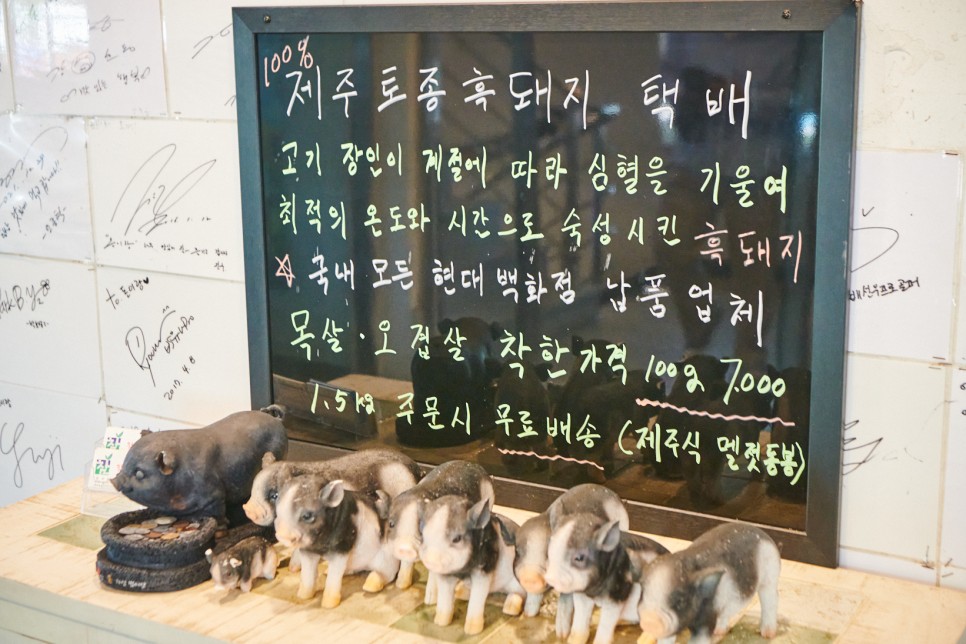 100%
제주토종흑돼지 택배
고기 장인이 계절에 따라 심혈을 기울여
최적의 온도와 시간으로 숙성시킨 흑돼지
☆ 국내 모든 현대백화점 납품업체
목살·오겹살 착한가격 100g 7.000
1.5kg 주문시 무료배송 (제주식 멜젓동봉)
2017. 4. 8